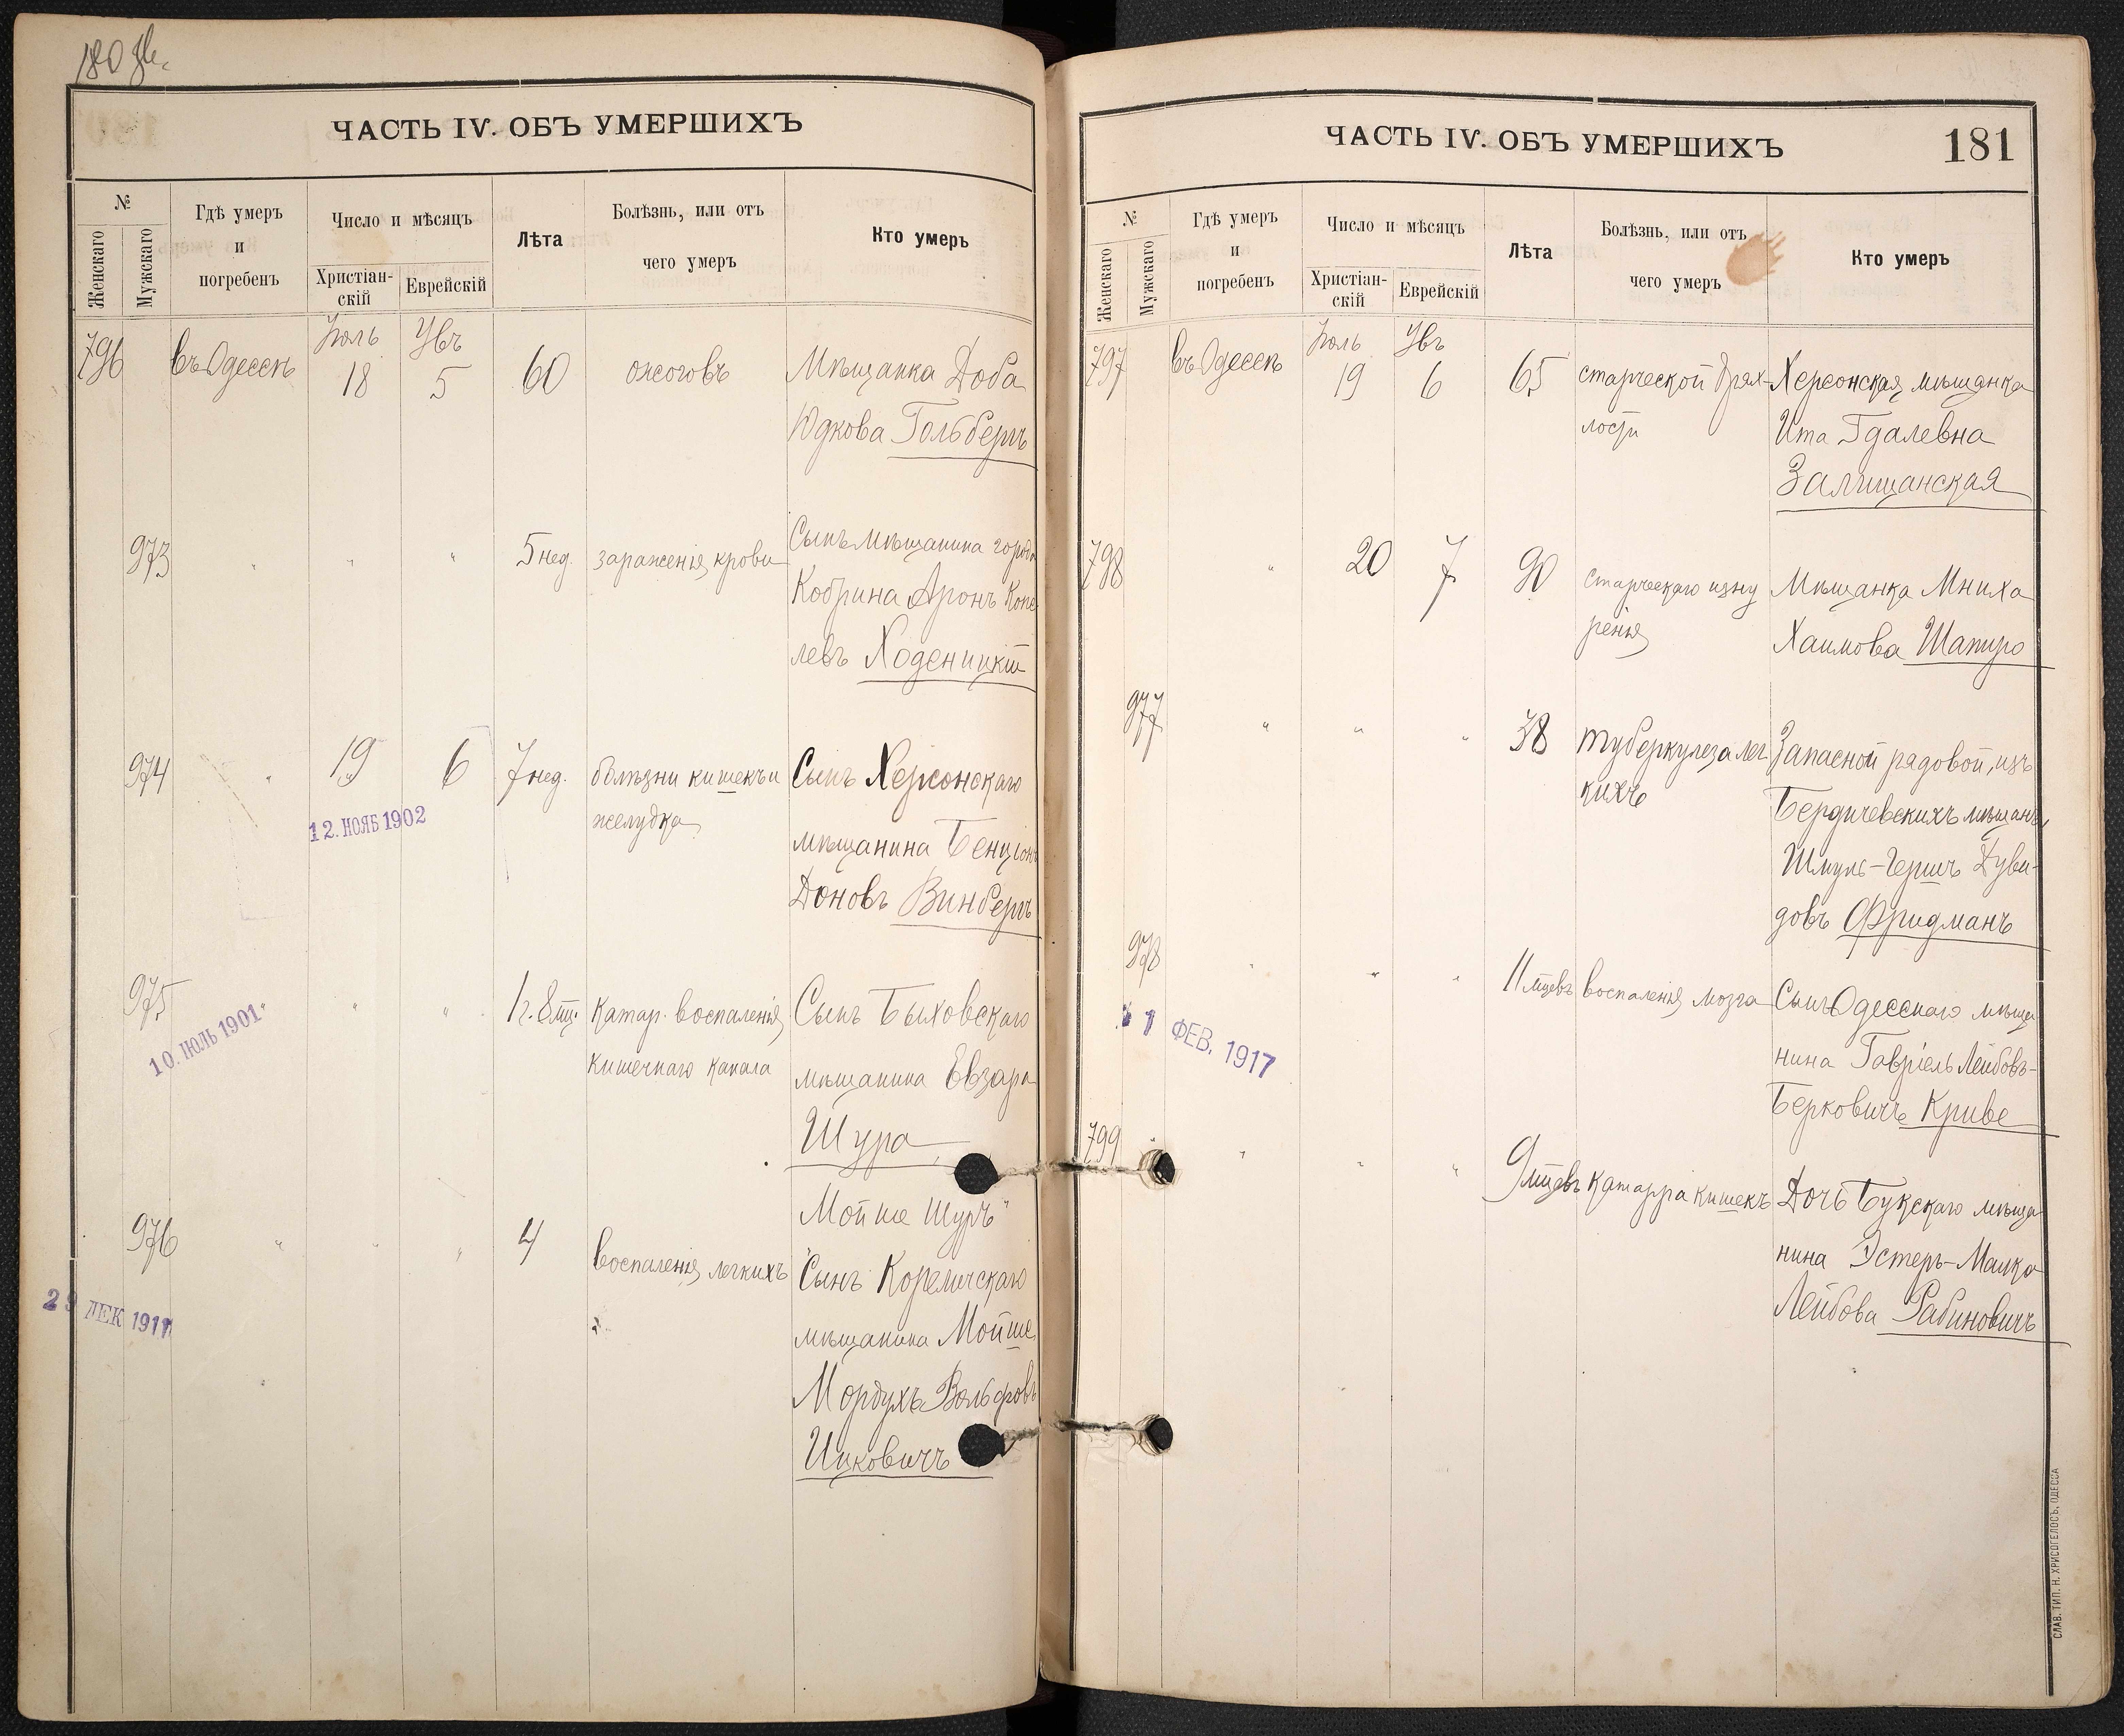 ЧАСТЬ IV. ОБЪ УМЕРШИХЪ
№
Женскаго
Мужскаго
Гдѣ умеръ
и
погребенъ
Число и мѣсяцъ
Христіан-
скій
Еврейскій
Лѣта
Болѣзнь, или отъ
чего умеръ
Кто умеръ
796
въ Одессѣ
Іюль
18
Увъ
5
60
ожоговъ
Мѣщанка Доба
Юдкова Гольбергъ
973
"
"
"
5 нед.
зараженія крови
Сынъ мѣщанина города
Кобрина Аронъ Копе
левъ Ходеницкій
974
"
19
6
12. НОЯБ 1902
7 нед.
болѣзни кишекъ и
желудка
Сынъ Херсонскаго
мѣщанина Бенціонъ
Доновъ Винбергъ
975
"
10. ІЮЛЬ 1901
"
"
1 г. 8 мц.
катар. воспаленія
кишечнаго канала
Сынъ Быховскаго
мѣщанина Евзара
Шура
Мойше Шуръ"
976
"
"
"
29 ДЕК 1911
4
воспаленія легкихъ
Сынъ Кореличскаго
мѣщанина Мойше
Мордухъ Вольфовъ
Ицковичъ
ЧАСТЬ IV. ОБЪ УМЕРШИХЪ
181
№
Женскаго
Мужскаго
Гдѣ умеръ
и
погребенъ
Число и мѣсяцъ
Христіан-
скій
Еврейскій
Лѣта
Болѣзнь, или отъ
чего умеръ
Кто умеръ
797
въ Одессѣ
Іюль
19
Увъ
6
65
старческой дрях-
лости
Херсонская мѣщанка
Ита Гдалевна
Залищанская
798
"
20
7
90
старческаго изну
ренія
Мѣщанка Мниха
Хаимова Шапиро
977
"
"
"
38
туберкулеза лег
кихъ
Запасной рядовой, изъ
Бердичевскихъ мѣщанъ
Шмуль-Гершъ Дуви-
довъ Фридманъ
978
"
"
"
1 ФЕВ. 1917
11 мцевъ
воспаленія мозга
Сынъ Одесскаго мѣща
нина Гавріель Лейбовъ-
Берковичъ Криве
799
"
"
"
9 мцевъ
катарра кишекъ
Дочь Букскаго мѣща
нина Эстеръ-Малка
Лейбова Рабиновичъ
СЛАВ. ТИП. Н. ХРИСОГЕЛОСЪ, ОДЕССА